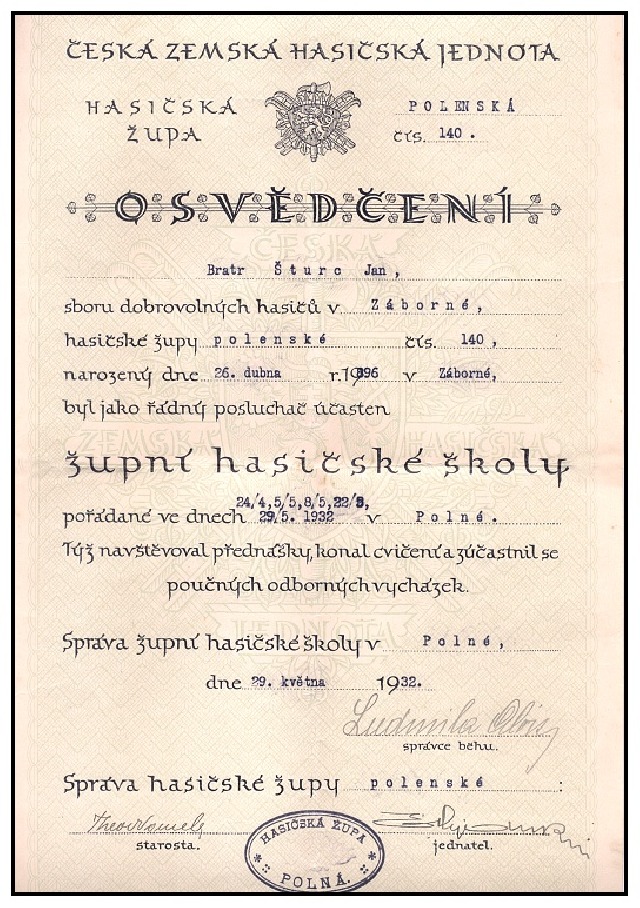 ČESKÁ ZEMSKÁ HASIČSKÁ JEDNOTA
HASIČSKÁ ŽUPA
POLENSKÁ
čís. 140.
OSVĚDČENÍ
Bratr Šturc Jan,
sboru dobrovolných hasičů v Záborné,
hasičské župy polenské čís. 140,
narozený dne 26. dubna r. 1896 v Záborné,
byl jako řádný posluchač účasten
župní hasičské školy
24/4, 5/5, 8/5, 22/5,
pořádané ve dnech 29/5. 1932 v Polné.
Týž navštěvoval přednášky, konal cvičení a zúčastnil se
poučných odborných vycházek.
Správa župní hasičské školy v Polné,
dne 29. května 1932.
Ludmila
správce běhu.
Správa hasičské župy polenské :
starosta.
jednatel.
HASIČSKÁ ŽUPA
POLNÁ.
ČESKÁ
ZEMSKÁ HASIČSKÁ
JEDNOTA